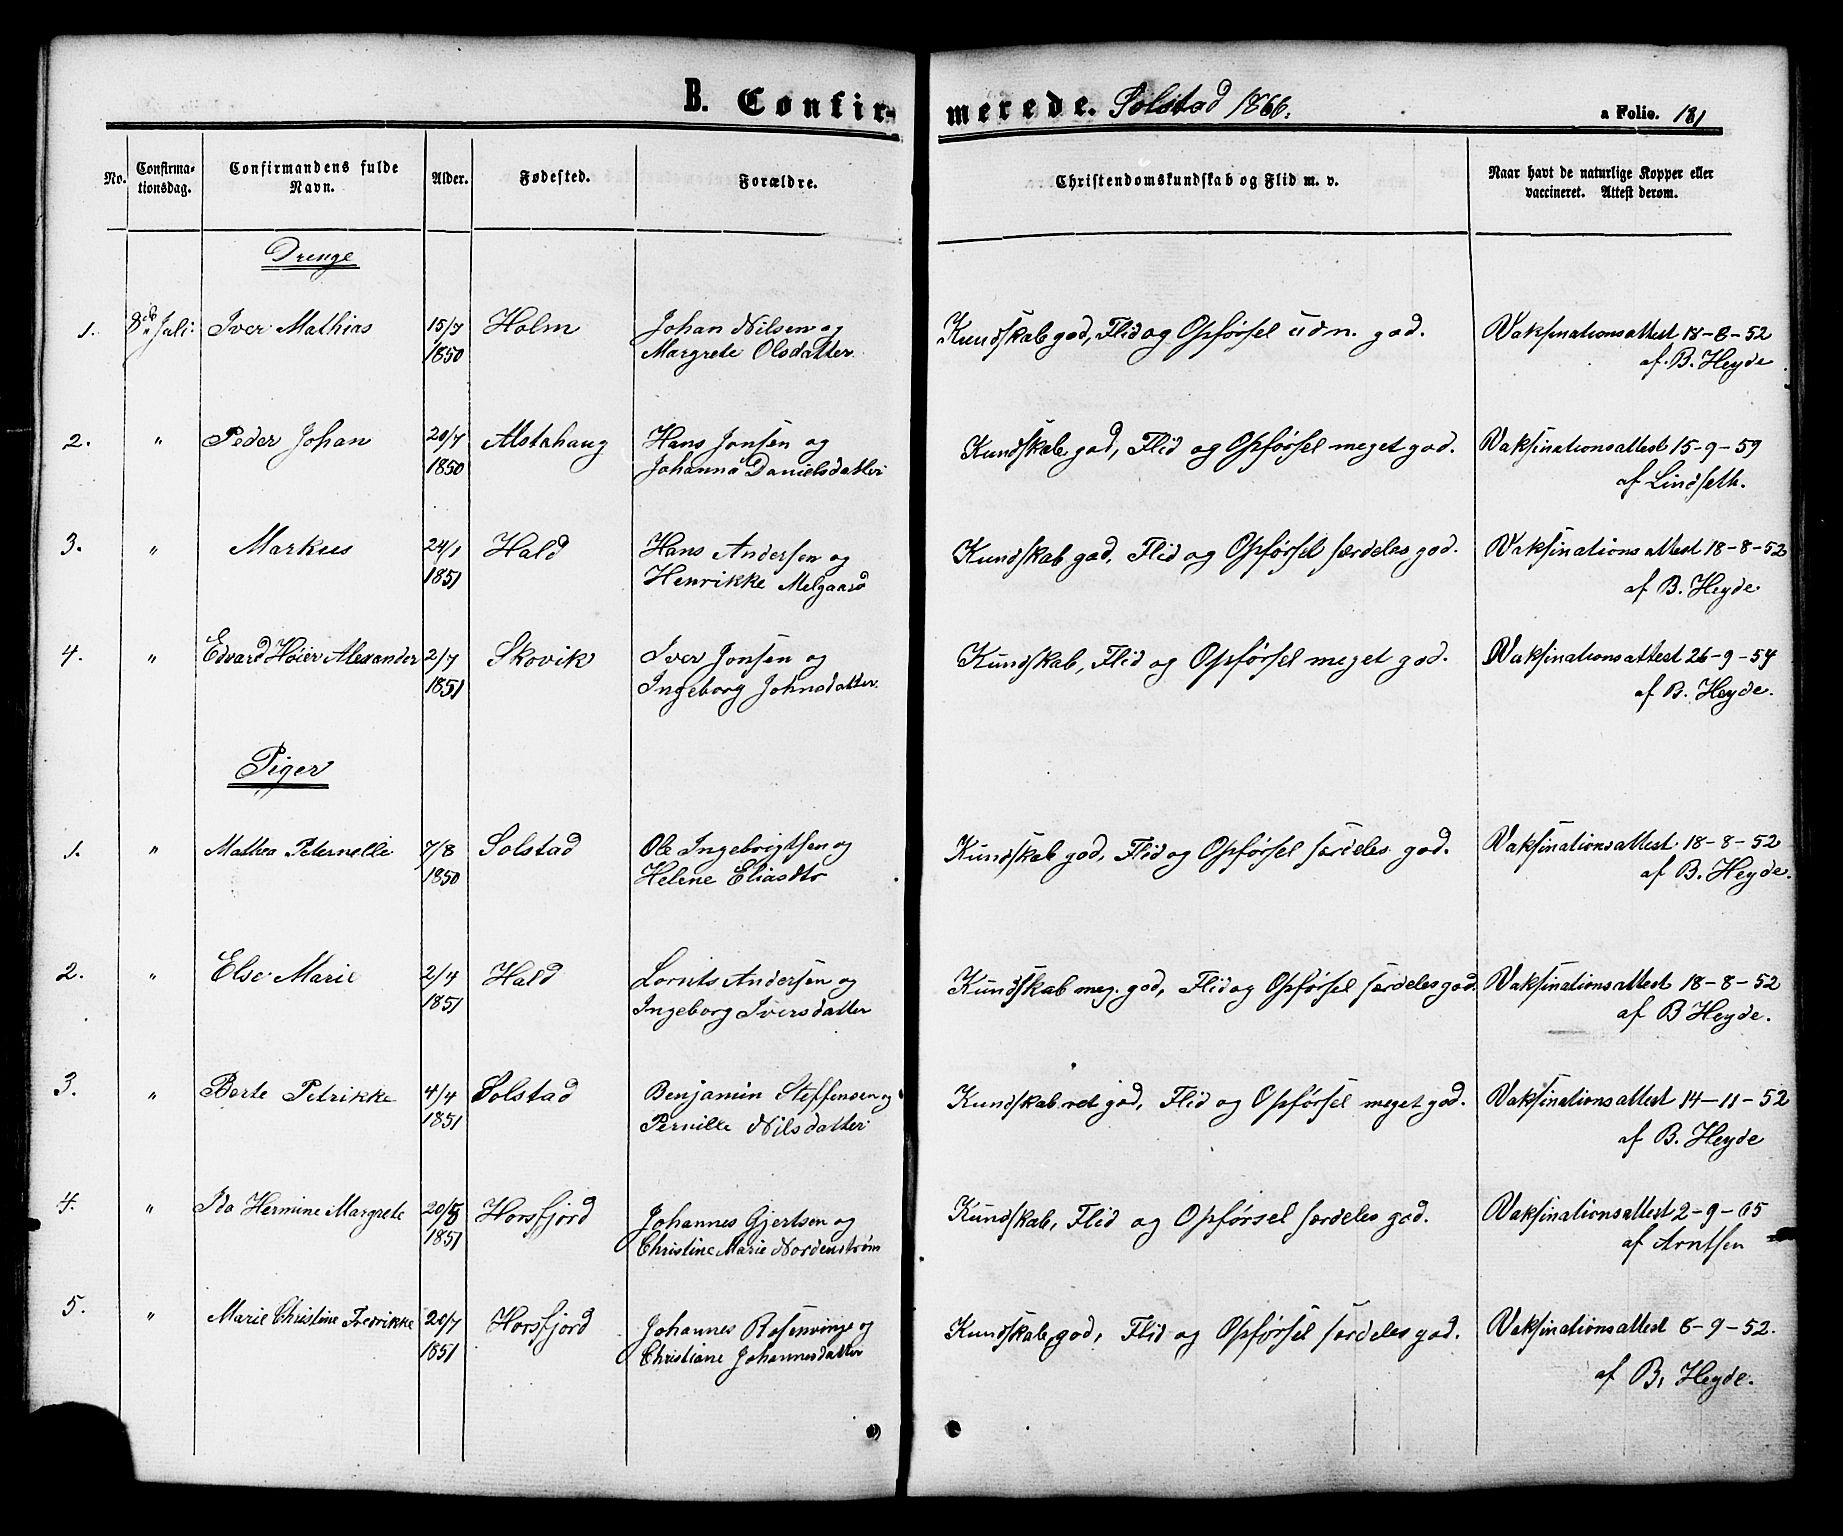 B. Confirmerede. Solstad 1866. a Folio. 181
No. Confirmationsdag. Confirmandens fulde Navn. Alder. Fødested. Forældre. Christendomskundskab og Flid m. v. Naar havt de naturlige Kopper eller vaccineret. Attest derom.
Drenge
1. 8de Juli: Iver Mathias 15/7 Holm Johan Nilsen og Kundskab god, Flid og Opførsel udn. god. Vaksinationsattest 18-8-52
1850 Margrete Olsdatter. af B. Heyde
2. " Peder Johan 20/7 Alstahaug Hans Jonsen og Kundskab god, Flid og Opførsel meget god. Vaksinationsattest 15-9-59
1850 Johanna Danielsdatter af Lindseth.
3. " Markus 24/1 Hald Hans Andersen og Kundskab god, Flid og Opførsel særdeles god. Vaksinationsattest 18-8-52
1851 Henrikke Melgaard af B. Heyde
4. " Edvard Høier Alexander 2/7 Skovik Iver Jonsen og Kundskab, Flid og Opførsel meget god. Vaksinationsattest 26-9-54
1851 Ingeborg Johnsdatter. af B. Heyde.
Piger
1. " Mathea Peternelle 7/8 Solstad Ole Ingebrigtsen og Kundskab god, Flid og Opførsel særdeles god. Vaksinationsattest 18-8-52
1850 Helene Eliasdtr af B. Heyde.
2. " Else Marie 2/4 Hald Lornts Andersen og Kundskab meg. god, Flid og Opførsel særdeles god. Vaksinationsattest 18-8-52
1851 Ingeborg Iversdatter af B Heyde.
3. " Berte Petrikke 4/4 Solstad Benjamin Steffensen og Kundskab ret god, Flid og Opførsel meget god. Vaksinationsattest 14-11-52
1851 Pernille Nilsdatter af B. Heyde
4. " Ida Hermine Margrete Horsfjord Johannes Gjertsen og Kundskab, Flid og Opførsel særdeles god. Vaksinationsattest 2-9-65
1851 Christine Marie Nordenstrøm af Arntsen
5. " Marie Christine Fredrikke 20/7 Horsfjord Johannes Rosenvinge og Kundskab god, Flid og Opførsel særdeles god. Vaksinationsattest 8-9-52.
1851 Christiane Johannesdatter af B. Heyde.